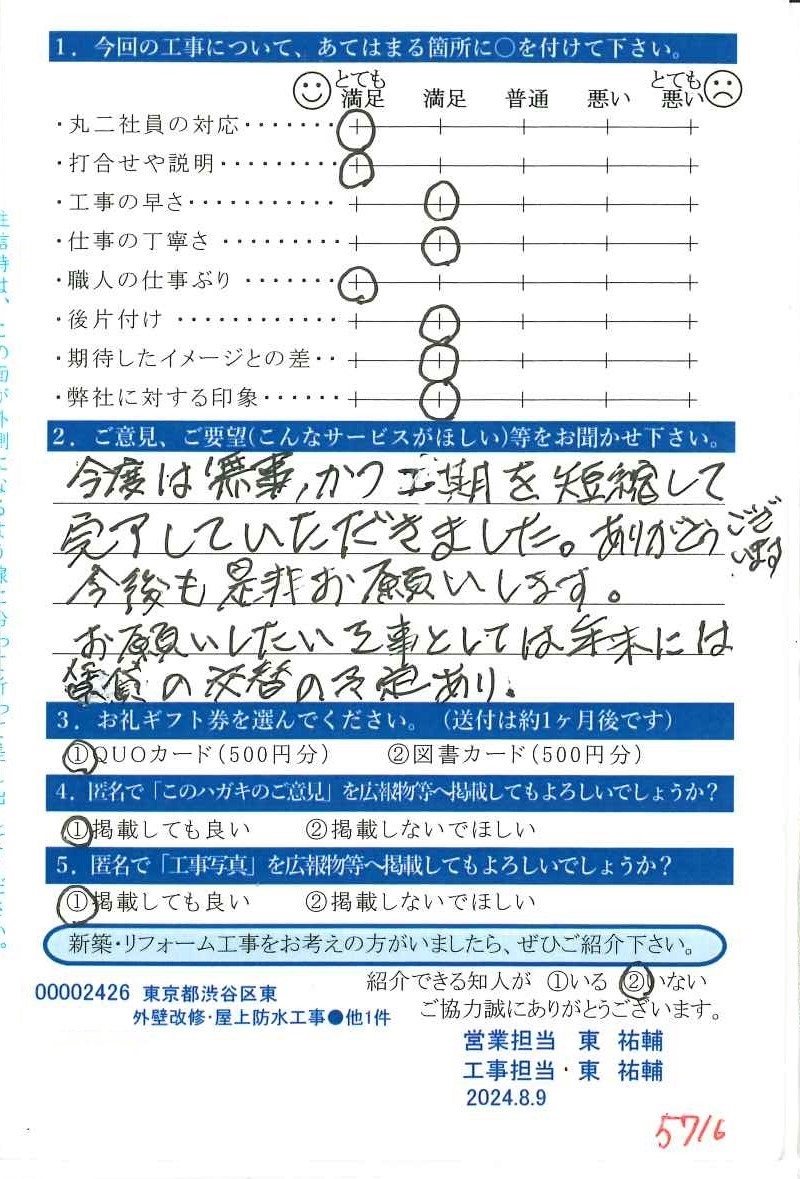 1．今回の工事について、あてはまる箇所に○を付けて下さい。
とても満足 満足 普通 悪い とても悪い
・丸二社員の対応･･･････
・打合せや説明･････････
・工事の早さ･･･････････
・仕事の丁寧さ ･････････
・職人の仕事ぶり ･･･････
・後片付け ････････････
・期待したイメージとの差･･
・弊社に対する印象･･････
2．ご意見、ご要望(こんなサービスがほしい)等をお聞かせ下さい。
今度は無事,かつ工期を短縮して
完了していただきました。ありがとうございます
今後も是非お願いします。
お願いしたい工事としては年末には
賃貸の改替の予定あり.
3．お礼ギフト券を選んでください。（送付は約1ヶ月後です）
①QUOカード(500円分) ②図書カード(500円分)
4．匿名で「このハガキのご意見」を広報物等へ掲載してもよろしいでしょうか？
①掲載しても良い ②掲載しないでほしい
5．匿名で「工事写真」を広報物等へ掲載してもよろしいでしょうか？
①掲載しても良い ②掲載しないでほしい
新築・リフォーム工事をお考えの方がいましたら、ぜひご紹介下さい。
紹介できる知人が ①いる ②いない
ご協力誠にありがとうございます。
00002426 東京都渋谷区東
外壁改修・屋上防水工事●他1件
営業担当 東 祐輔
工事担当・東 祐輔
2024.8.9
5716